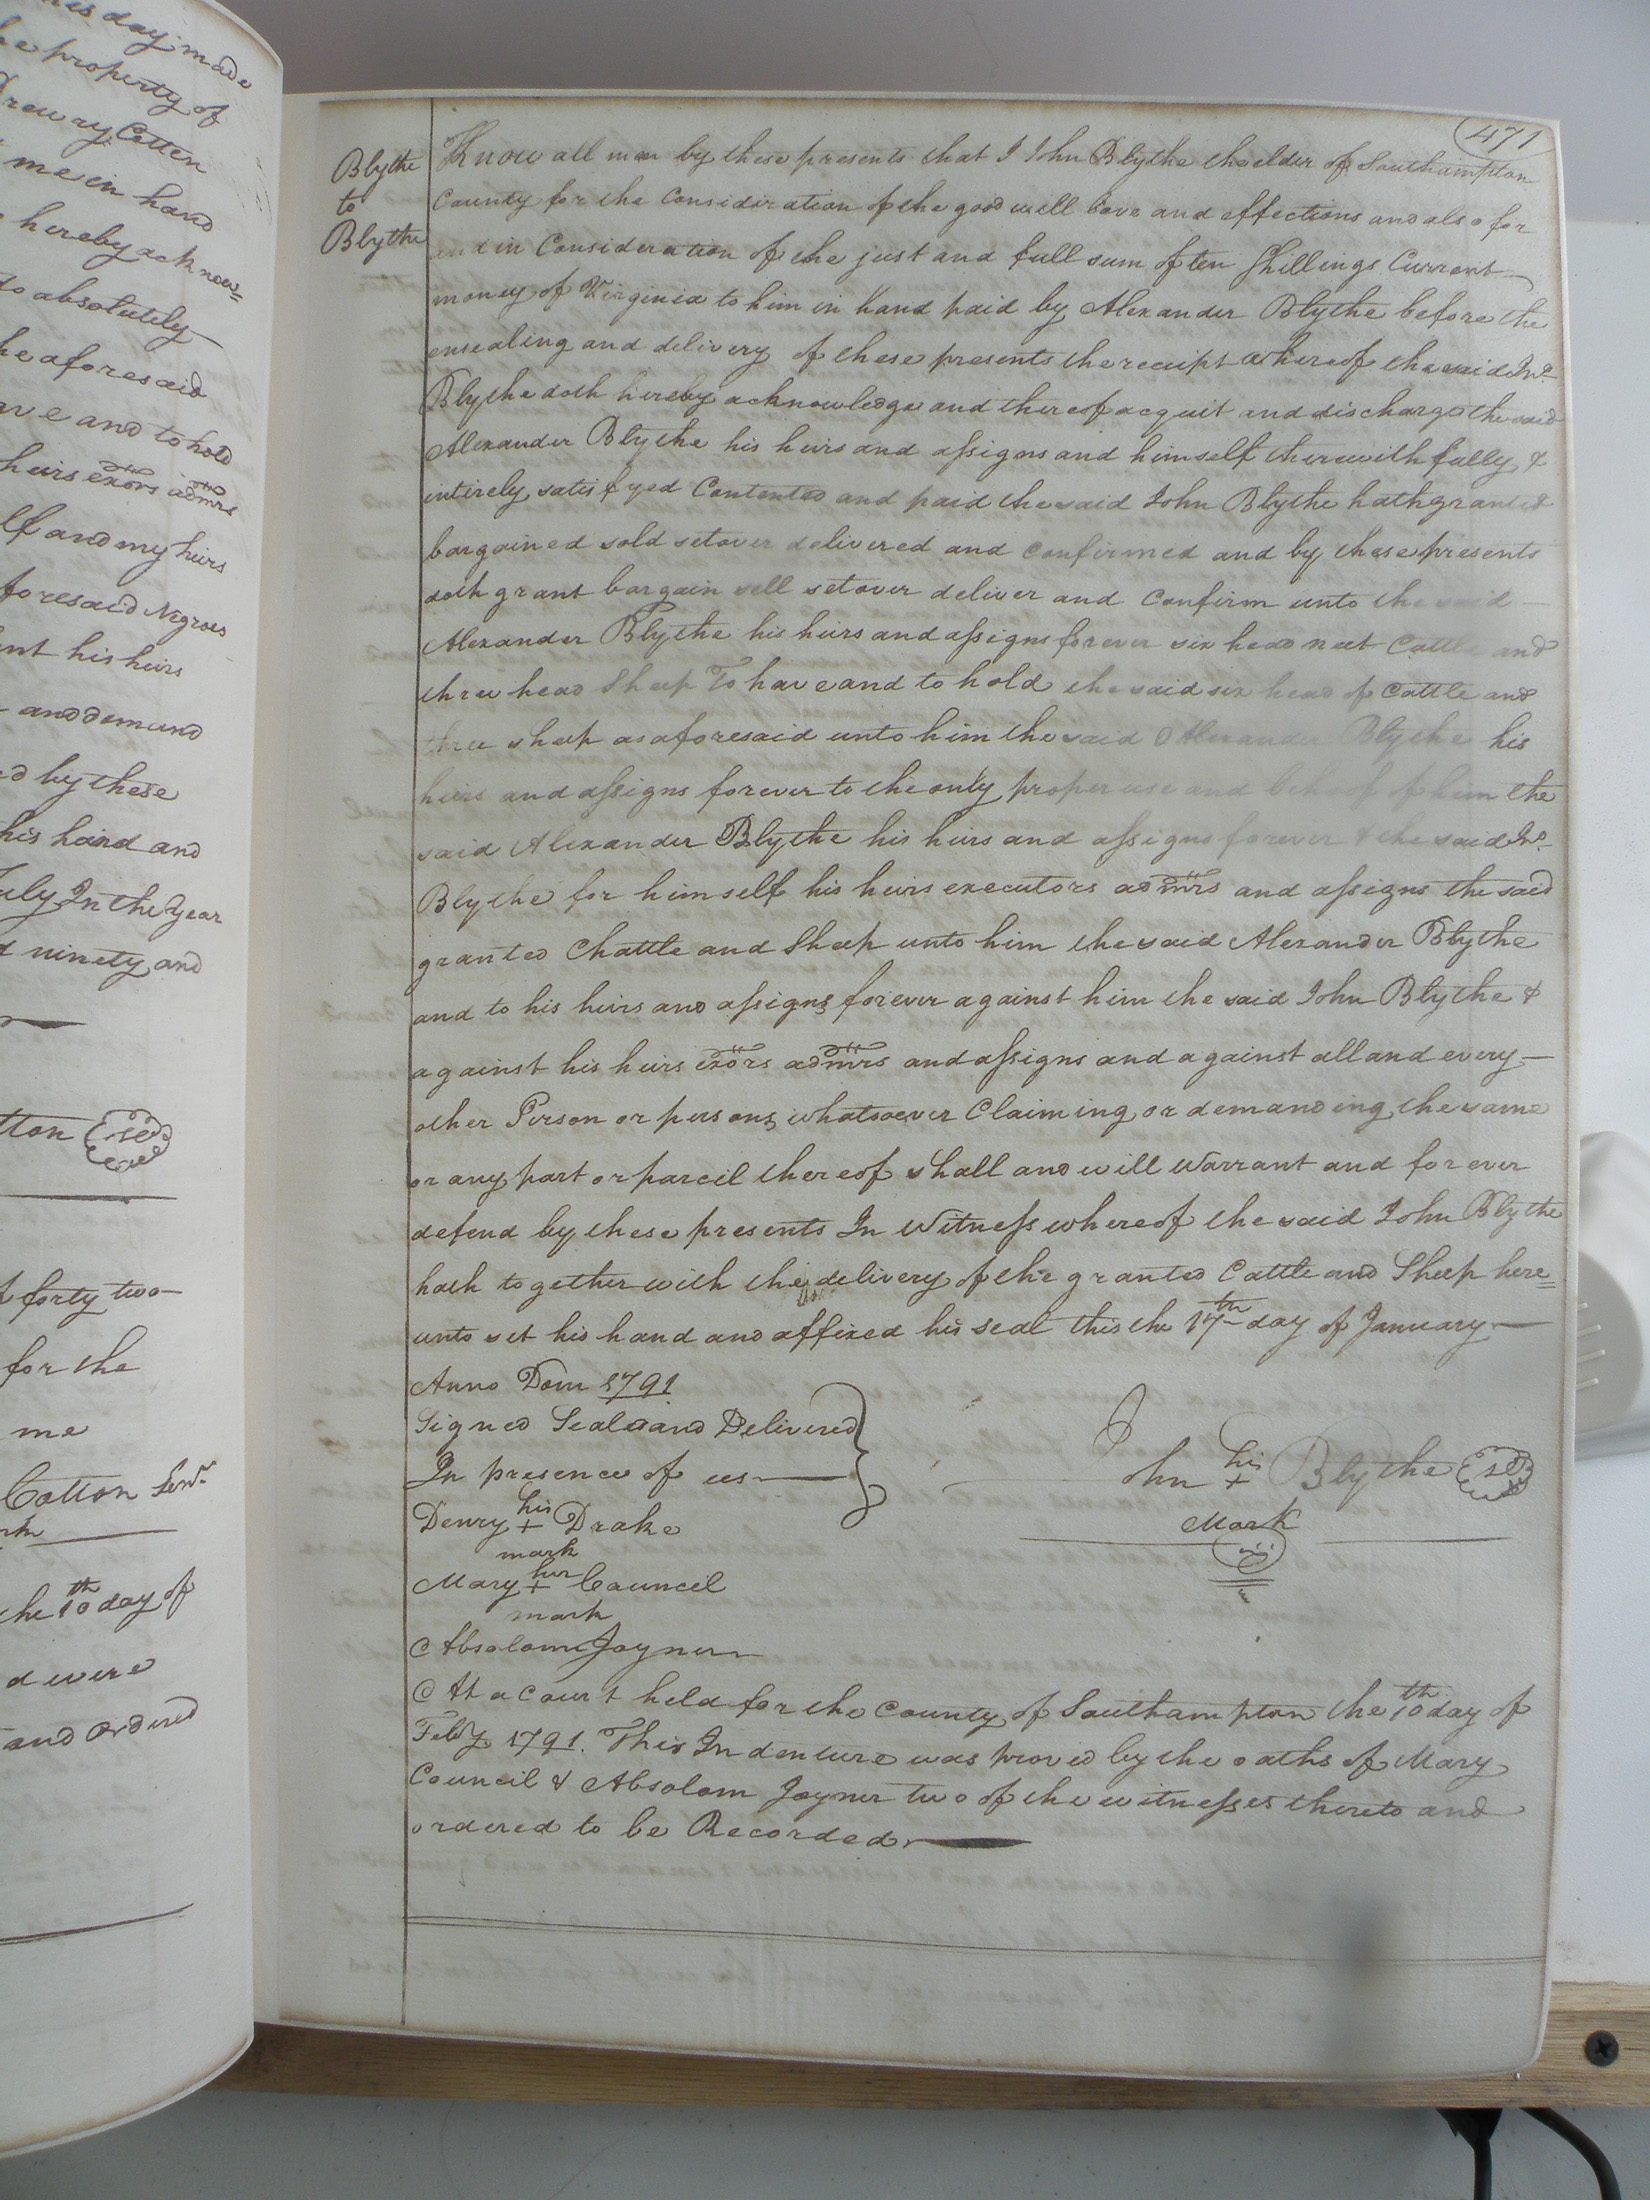 his day made
he property of
Drewry Cotten
me in hand
hereby acknow=
to absolutely
he aforesaid
ave and to hold
heirs exors admrs
lf and my heirs
foresaid Negroes
ent his heirs
and demand
ed by these
his hand and
July In the Year
d ninety and
tton Seal
forty two
for the
me
Cotton Senr
the 10th day of
d were
and Ordered
471
Blythe
to
Blythe
Know all men by these presents that I John Blythe the elder of Southampton
County for the Consideration of the good will love and effections and also for
and in Consideration of the just and full sum of ten Shillings Current
money of Virginia to him in hand paid by Alexander Blythe before the
ensealing and delivery of these presents the receipt whereof the said Jno.
Blythe doth hereby acknowledge and thereof acquit and discharge the said
Alexander Blythe his heirs and assigns and himself therewith fully &
intirely satisfyed Contented and paid the said John Blythe hath granted
bargained sold setover delivered and confirmed and by these presents
doth grant bargain sell setover deliver and Confirm unto the said
Alexander Blythe his heirs and assigns forever six head neet Cattle and
three head Sheep To have and to hold the said six head of Cattle and
three sheep as aforesaid unto him the said Alexander Blythe his
heirs and assigns forever to the only proper use and behoof of him the
said Alexander Blythe his heirs and assigns forever & the said Jno.
Blythe for himself his heirs executors admrs and assigns the said
granted Chattle and Sheep unto him the said Alexander Blythe
and to his heirs and assigns forever against him the said John Blythe &
against his heirs exors admrs and assigns and against all and every
other Person or persons whatsoever Claiming or demanding the same
or any part or parcil thereof shall and will Warrant and forever
defend by these presents In Witness whereof the said John Blythe
hath together with the delivery of the granted Cattle and Sheep here=
unto set his hand and affixed his seal this the 17th day of January
Anno Dom 1791
Signed Sealed and Delivered
In presence of us
John his + Blythe Seal
Mark
Denry his + Drake
mark
Mary her + Council
mark
Absolom Joyner
At a Court held for the County of Southampton the 10th day of
Feby 1791. This Indenture was proved by the oaths of Mary
Council & Absolom Joyner two of the witnesses thereto and
ordered to be Recorded